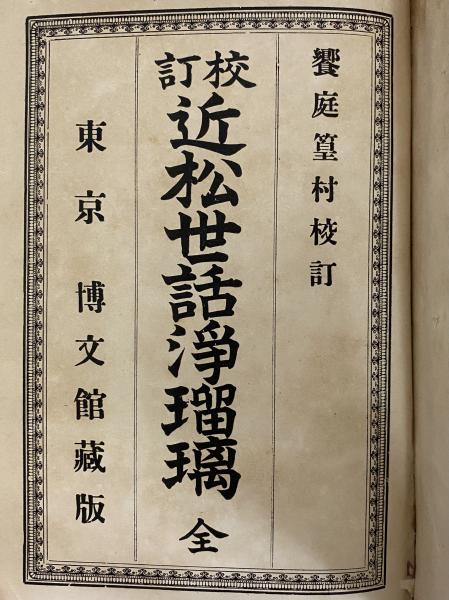 饗庭篁村校訂
校訂
近松世話淨瑠璃 全
東京 博文館藏版